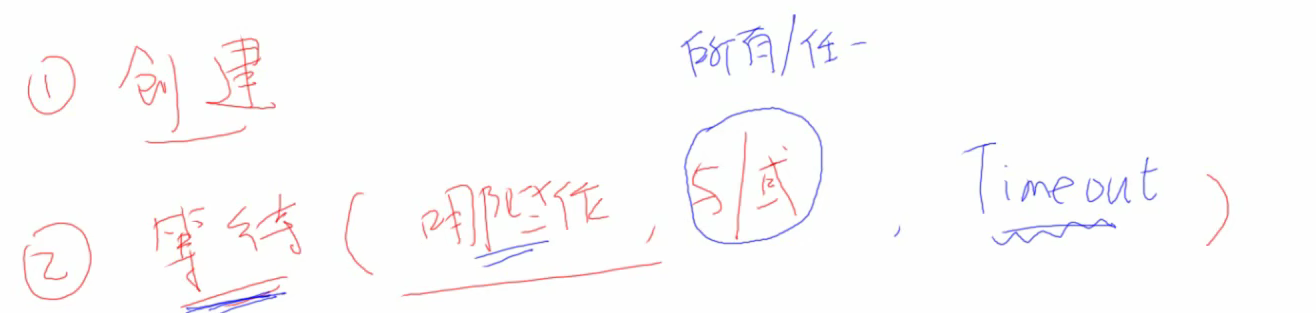 ① 创建
所有/任一
② 等待(哪些位, 与/或, Timeout)